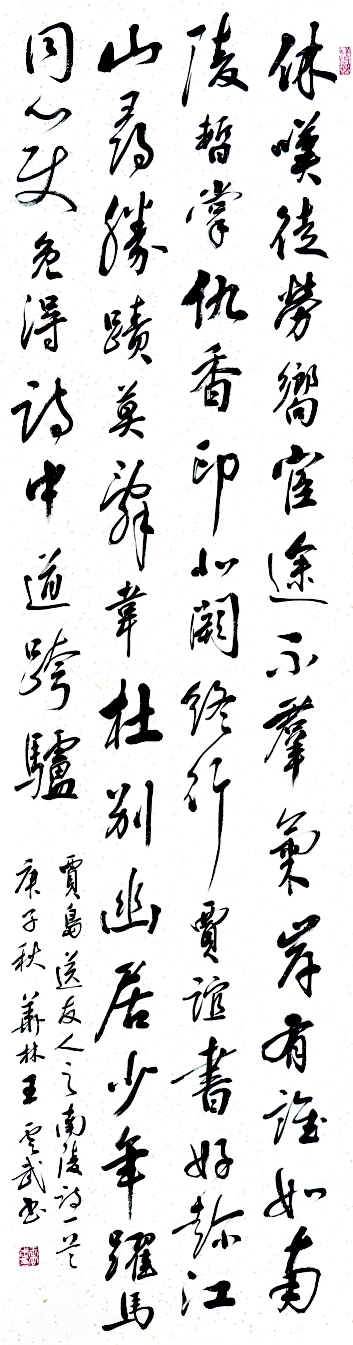 休嘆徒勞嚮宦途不羣氣岸有誰如南
陵暫掌仇香印北闕終行賈誼書好趁江
山尋勝蹟莫辭韋杜別幽居少年躍馬
同心使免得詩中道跨驢
賈島送友人之南陵詩一首
庚子秋華林王雲武書